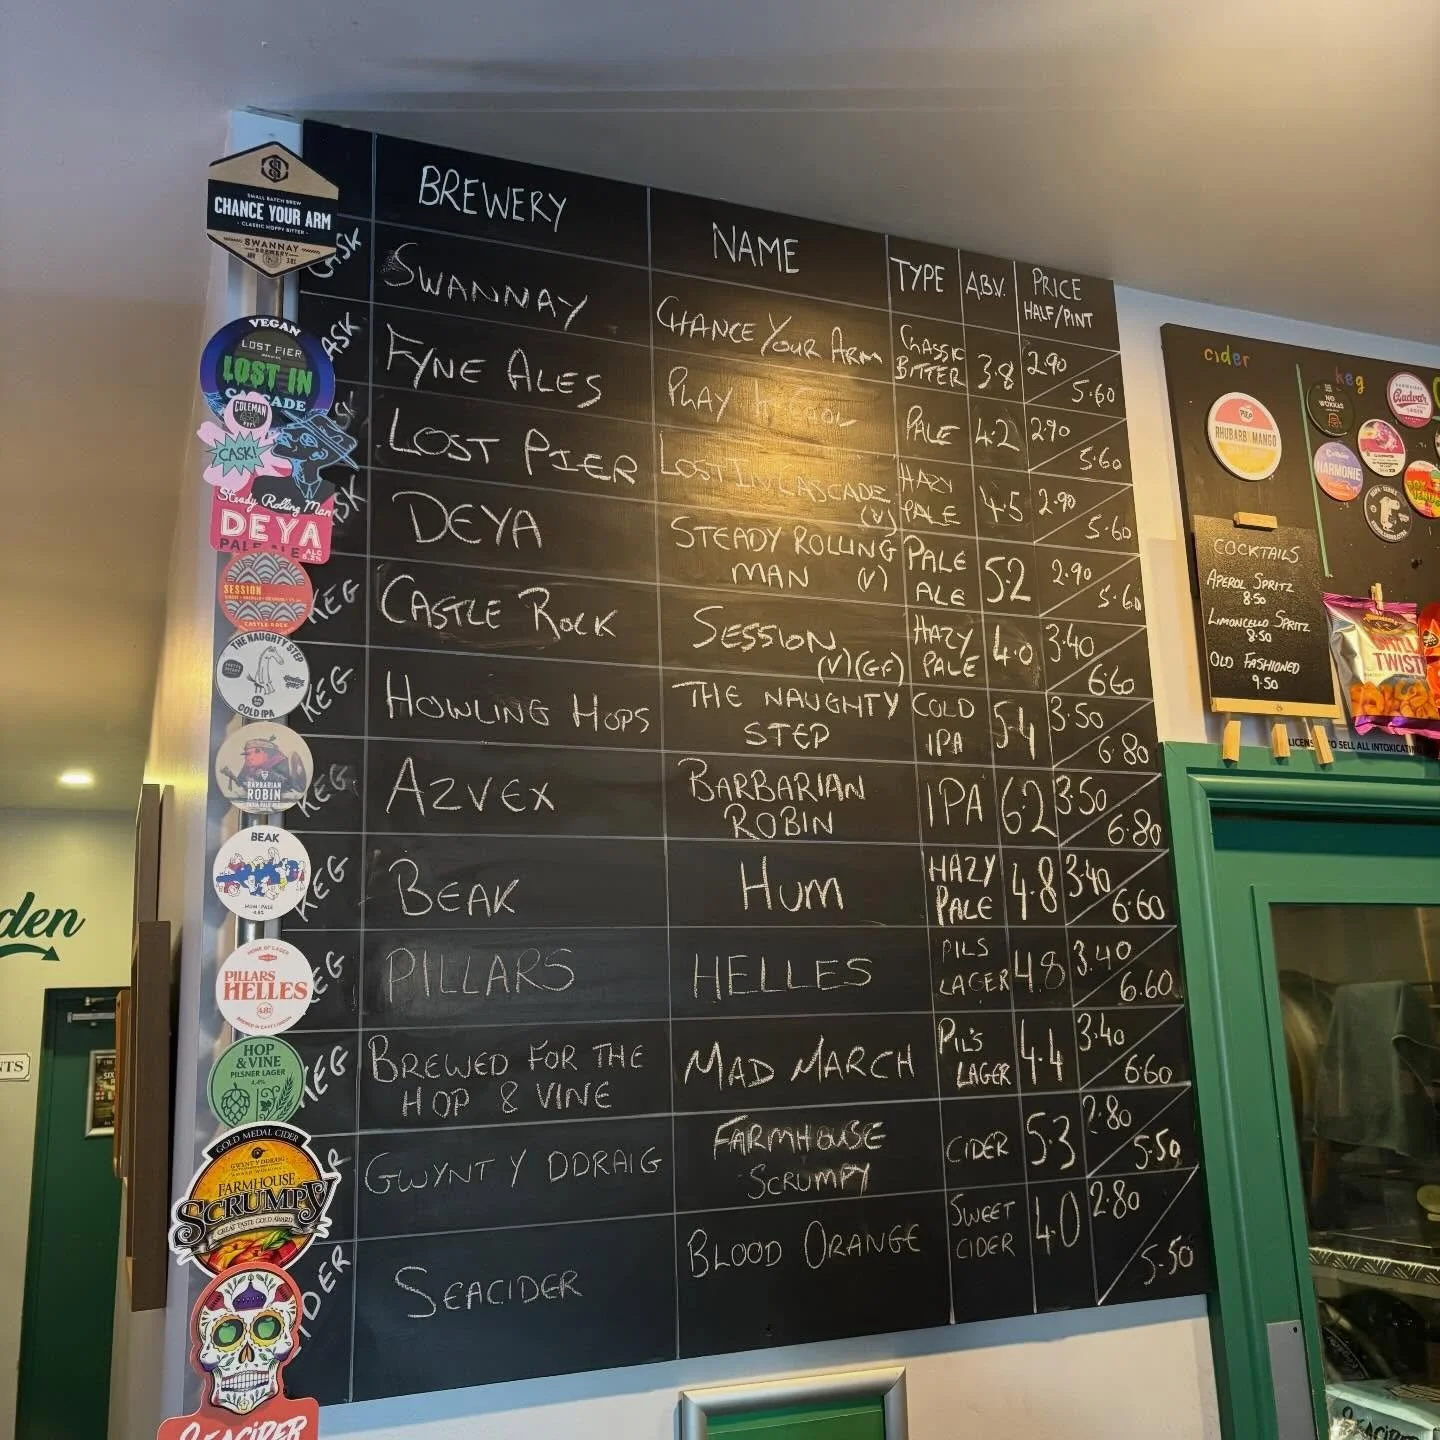 BREWERY NAME TYPE A.B.V. PRICE HALF/PINT
CASK SWANNAY CHANCE YOUR ARM CLASSIC BITTER 3.8 2.90 5.60
CASK FYNE ALES PLAY PALE 4.2 2.90 5.60
CASK LOST PIER LOST IN CASCADE (V) HAZY PALE 4.5 2.90 5.60
CASK DEYA STEADY ROLLING MAN (V) PALE ALE 5.2 2.90 5.60
KEG CASTLE ROCK SESSION (V)(GF) HAZY PALE 4.0 3.40 6.60
KEG HOWLING HOPS THE NAUGHTY STEP COLD IPA 5.4 3.50 6.80
KEG AZVEX BARBARIAN ROBIN IPA 6.2 3.50 6.80
KEG BEAK HUM HAZY PALE 4.8 3.40 6.60
KEG PILLARS HELLES PILS LAGER 4.8 3.40 6.60
KEG BREWED FOR THE HOP & VINE MAD MARCH PIL'S LAGER 4.4 3.40 6.60
GWYNT Y DDRAIG FARMHOUSE SCRUMPY CIDER 5.3 2.80 5.50
CIDER SEACIDER BLOOD ORANGE SWEET CIDER 4.0 2.80 5.50
SMALL BATCH BREW
CHANCE YOUR ARM
- CLASSIC HOPPY BITTER -
SWANNAY
BREWERY
VEGAN
LOST PIER
LOST IN
CASCADE
COLEMAN
CASK!
Steady Rolling Man
DEYA
PALE ALE
ALC
5.2%
SESSION
CASTLE ROCK
THE NAUGHTY STEP
COLD IPA
BARBARIAN
ROBIN
BEAK
HUM PALE
4.8%
HOME OF LAGER
PILLARS
HELLES
4.8%
BREWED IN EAST LONDON
HOP
& VINE
PILSNER LAGER
4.4%
GOLD MEDAL CIDER
GWYNT Y DDRAIG
FARMHOUSE
SCRUMPY
GREAT TASTE GOLD AWARD
SEACIDER
den
NTS
cider
keg
RHUBARB MANGO
NO
WORKAS
Gadvar
HARMONIE
COCKTAILS
APEROL SPRITZ
8.50
LIMONCELLO SPRITZ
8.50
OLD FASHIONED
9.50
TWIST
LICENS TO SELL ALL INTOXICATING
SEACIDER